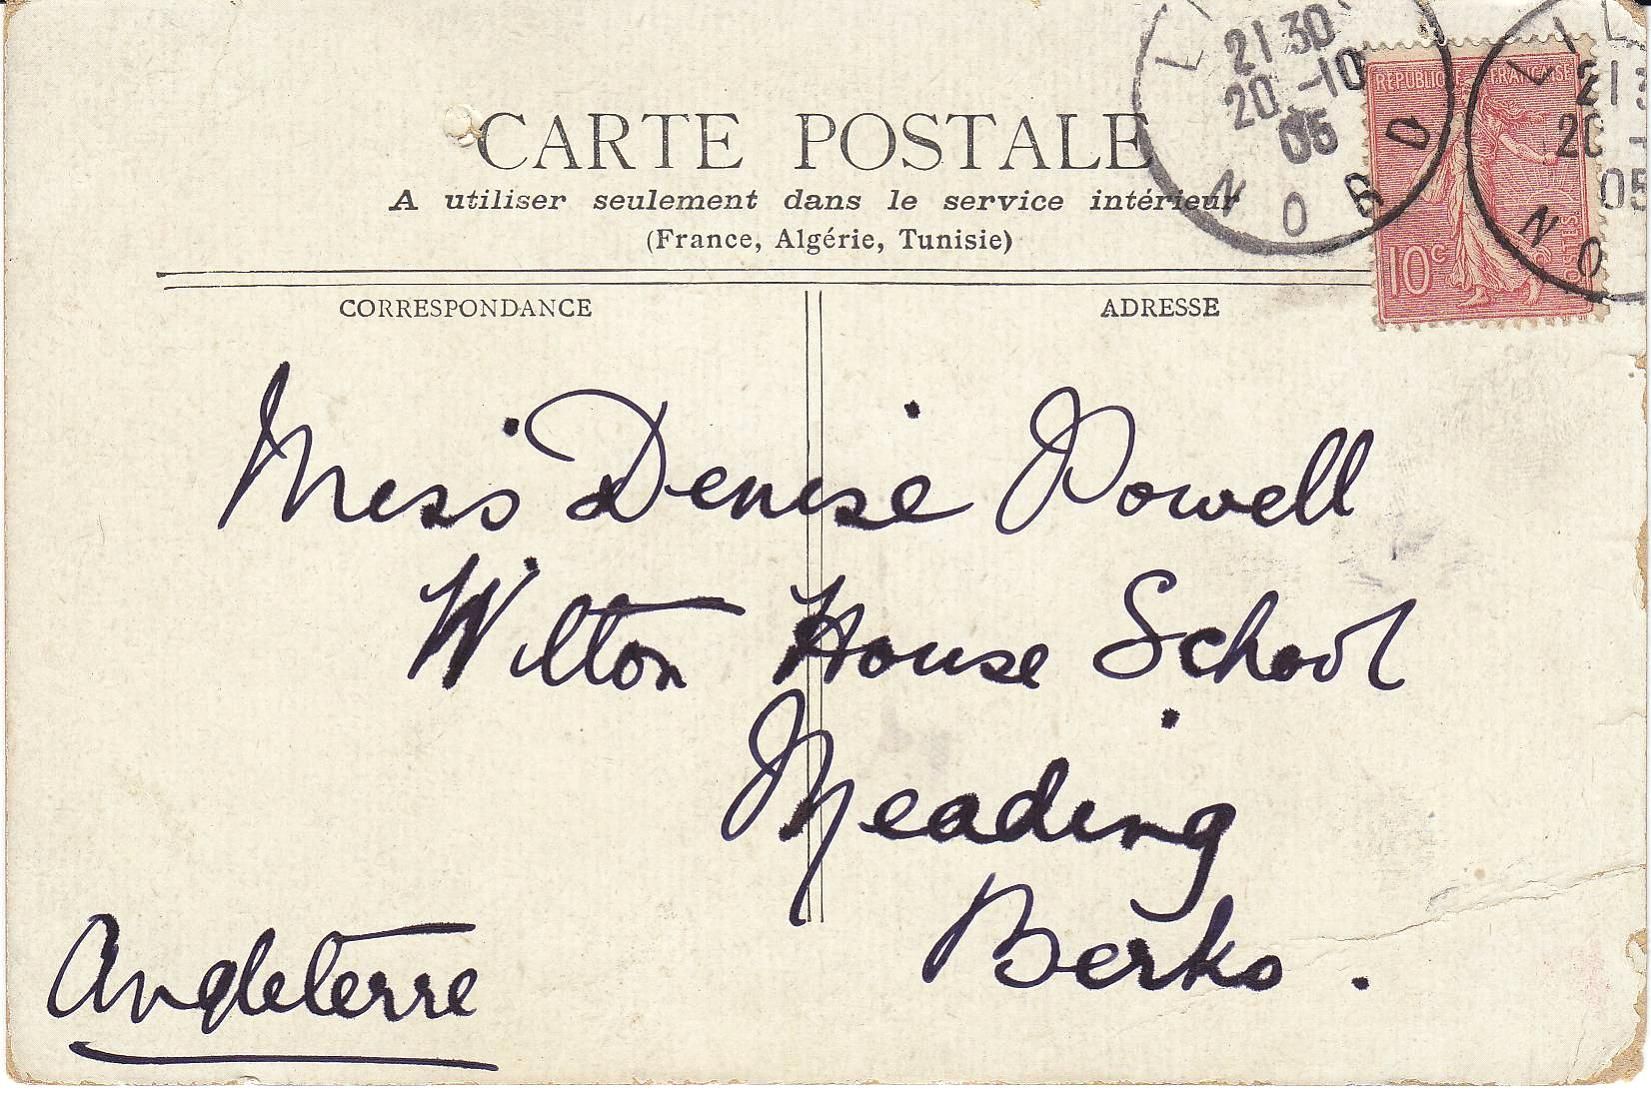 CARTE POSTALE
A utiliser seulement dans le service intérieur
(France, Algérie, Tunisie)
CORRESPONDANCE
ADRESSE
21 30
20 -10
05
NORD
REPUBLIQUE FRANÇAISE
POSTES
10c
21 3
20 -
05
NO
Miss Denise Powell
Wilton House School
Reading
Berks.
Angleterre